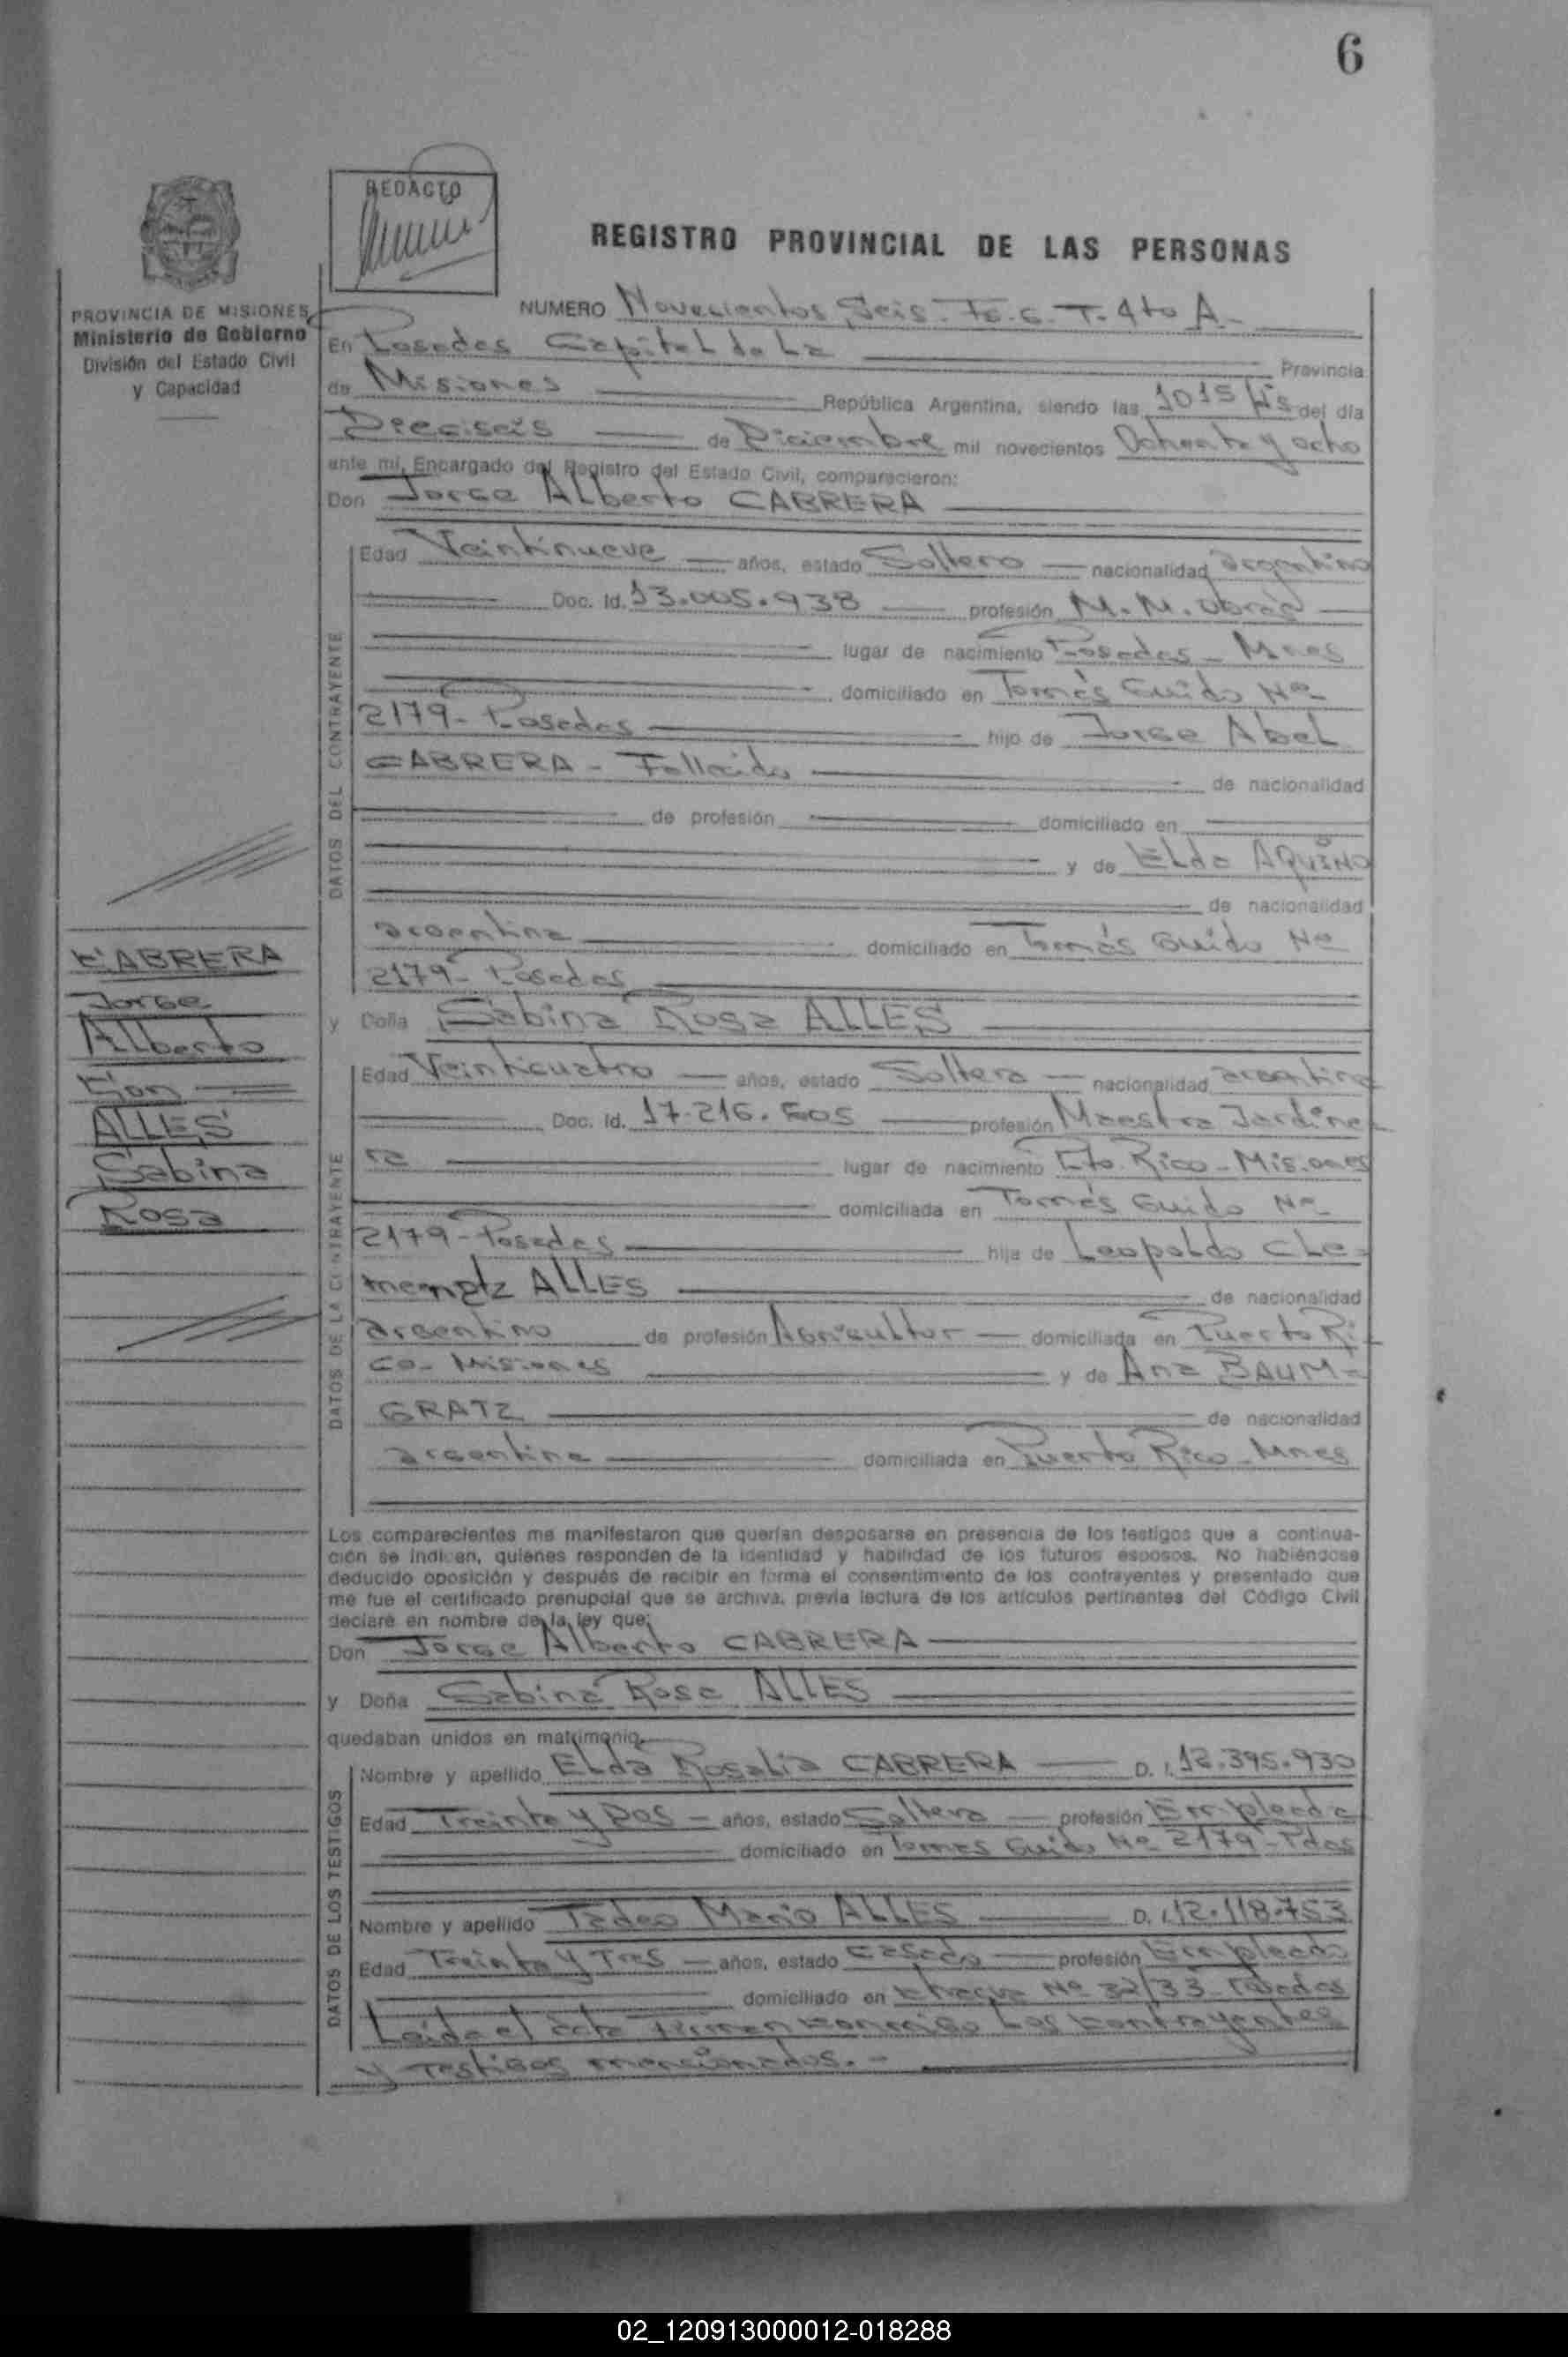 6
REDACTO
REGISTRO PROVINCIAL DE LAS PERSONAS
PROVINCIA DE MISIONES
Ministerio de Gobierno
División del Estado Civil
y Capacidad
NUMERO Novecientos Seis - Fo. 6 - T. 4to A -
En Posadas Capital de La Provincia
de Misiones República Argentina, siendo las 1015 Hs del día
Dieciseis de Diciembre mil novecientos Ochenta y ocho
ante mi, Encargado del Registro del Estado Civil, comparecieron:
Don Jorge Alberto CABRERA
Edad Veintinueve años, estado Soltero nacionalidad argentino
Doc. Id. 13.005.938 profesión M. M. Obras
lugar de nacimiento Posadas - Mnes
domiciliado en Tomás Guido Nº
2179 - Posadas hijo de Jorge Abel
CABRERA - Fallecido de nacionalidad
de profesión domiciliado en
y de Elda AQUINO
de nacionalidad
argentina domiciliado en Tomás Guido Nº
2179 - Posadas
y Doña Sabina Rosa ALLES
Edad Veinticuatro años, estado Soltera nacionalidad argentina
Doc. Id. 17.216.605 profesión Maestra Jardine
ra lugar de nacimiento Pto. Rico - Misiones
domiciliada en Tomás Guido Nº
2179 - Posadas hija de Leopoldo Cle-
ALLES de nacionalidad
argentino de profesión Agricultor domiciliada en Puerto Ri-
co - Misiones y de Ana BAUM-
GRATZ de nacionalidad
argentina domiciliada en Puerto Rico - Mnes
DATOS DEL CONTRAYENTE
DATOS DE LA CONTRAYENTE
CABRERA
Jorge
Alberto
con
ALLES
Sabina
Rosa
Los comparecientes me manifestaron que querían desposarse en presencia de los testigos que a continua-
ción se indican, quienes responden de la identidad y habilidad de los futuros esposos. No habiéndose
deducido oposición y después de recibir en forma el consentimiento de los contrayentes y presentado que
me fue el certificado prenupcial que se archiva, previa lectura de los artículos pertinentes del Código Civil
declaré en nombre de la ley que:
Don Jorge Alberto CABRERA
y Doña Sabina Rosa ALLES
quedaban unidos en matrimonio.
Nombre y apellido Elda Rosalia CABRERA D. I. 12.395.930
Edad Treinta y Dos años, estado Soltera profesión Empleada
domiciliado en Tomas Guido Nº 2179 - Pdas
Nombre y apellido Tadeo Mario ALLES D. I. 12.118.753
Edad Treinta y Tres años, estado Casado profesión Empleado
domiciliado en Nº 32/33 - Posadas
DATOS DE LOS TESTIGOS
Leida el acta Firman conmigo Los contrayentes
y Testigos mensionados. -
02_120913000012-018288